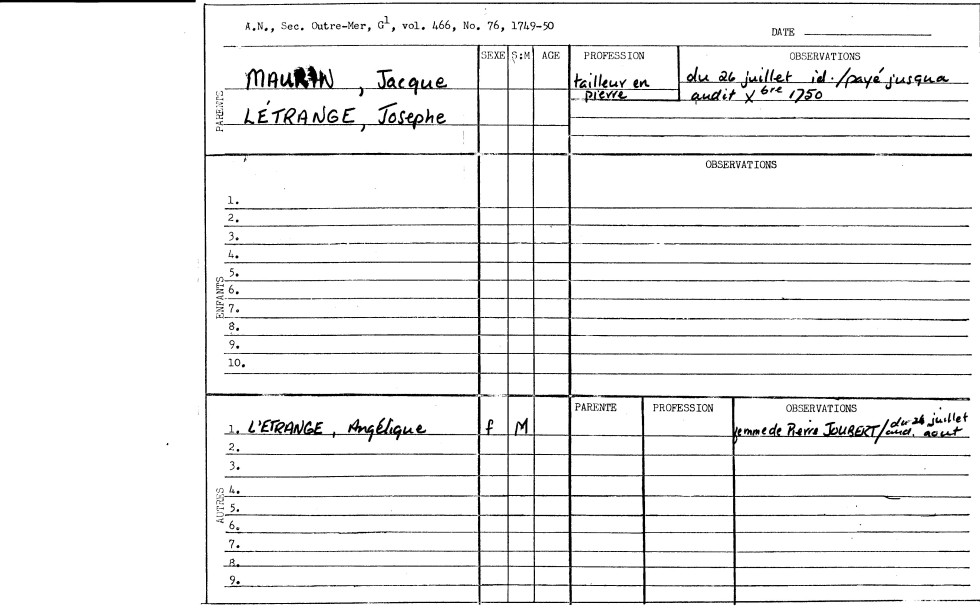 A.N., Sec. Outre-Mer, G1, vol. 466, No. 76, 1749-50
DATE
SEXE S:M AGE PROFESSION OBSERVATIONS
PARENTS
MAURIN, Jacque tailleur en pierre du 26 juillet id./payé jusqua audit Xbre 1750
LÉTRANGE, Josephe
OBSERVATIONS
ENFANTS
1.
2.
3.
4.
5.
6.
7.
8.
9.
10.
PARENTE PROFESSION OBSERVATIONS
AUTRES
1. L'ETRANGE, Angélique f M femme de Pierre JOUBERT/du 26 juillet aud. aout
2.
3.
4.
5.
6.
7.
8.
9.